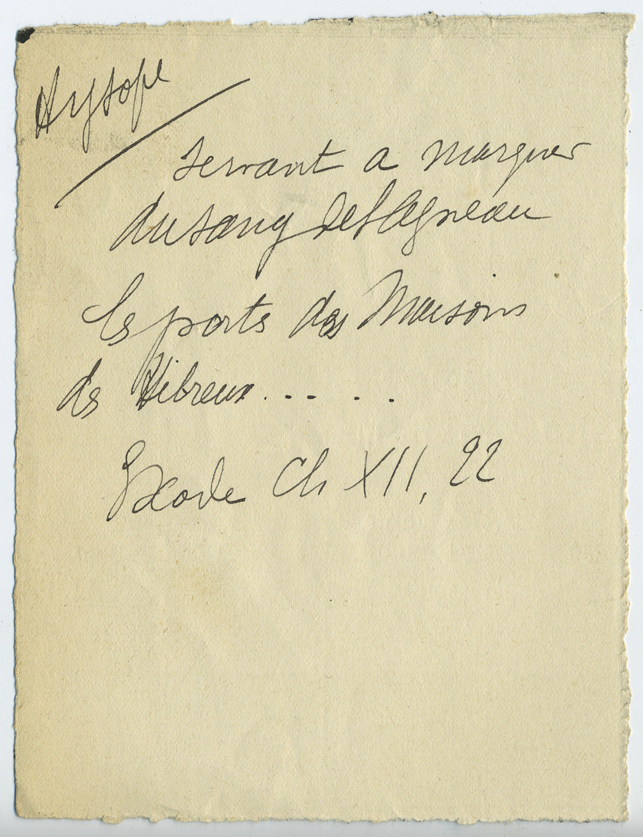 Hysope
servant a marquer
du sang de l'Agneau
les portes des Maisons
des Hébreux.....
Exode Ch XII, 22